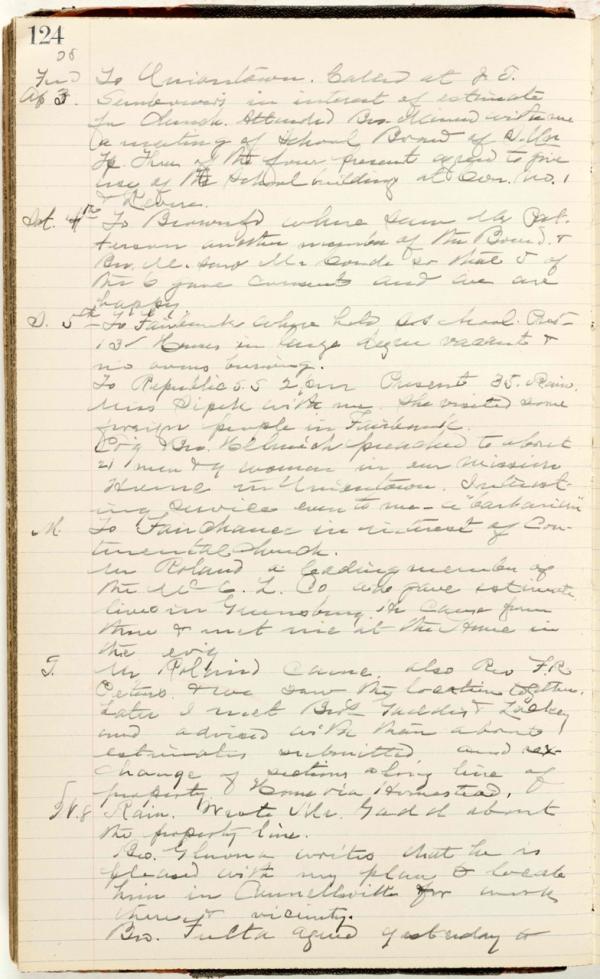 124
08
Frid To Uniontown. Called at J. T.
Ap 3. in interest of estimate
for Church. Attended Bro. with me
a meeting of School Board of
Tp. Three of the four present agreed to give
use of the School building at Con. No. 1
&
Sat. 4th To Brownfd where saw Mr Pat-
terson another member of the Board. &
Bro. M. saw Mr so that 5 of
the 6 gave consent and we are
happy.
S. 5th To Fairbank where held School. Pres-
13 Houses in large degree vacant &
no ovens burning.
To Republic S.S 2 pm Present 35. Rain.
Miss Sipek with me. She visited some
foreign people in Fairbank.
Evg Bro. preached to about
21 men & 9 women in our Mission
Home in Uniontown. Interest-
ing service even to me - a "barbarian"
M. To Fairchance in interest of Con-
tinental Church.
Mr Roland a leading member of
the Mc C. L. Co who gave estimate
lives in Greensburg. He came from
there & met me at the Home in
the evig
T. Mr Roland came, also Rev F. R.
Peters & we saw the location together.
Later I met Bros Gaddis & Lackey
and advised with them about
estimates submitted and ex-
change of sections along line of
property. Home via Homestead.
W. 8 Rain. Wrote Mr. Gaddis about
the property line.
Bro. writes that he is
pleased with my plan to locate
him in Connellsville for work
there & vicinity.
Bro. agreed yesterday to